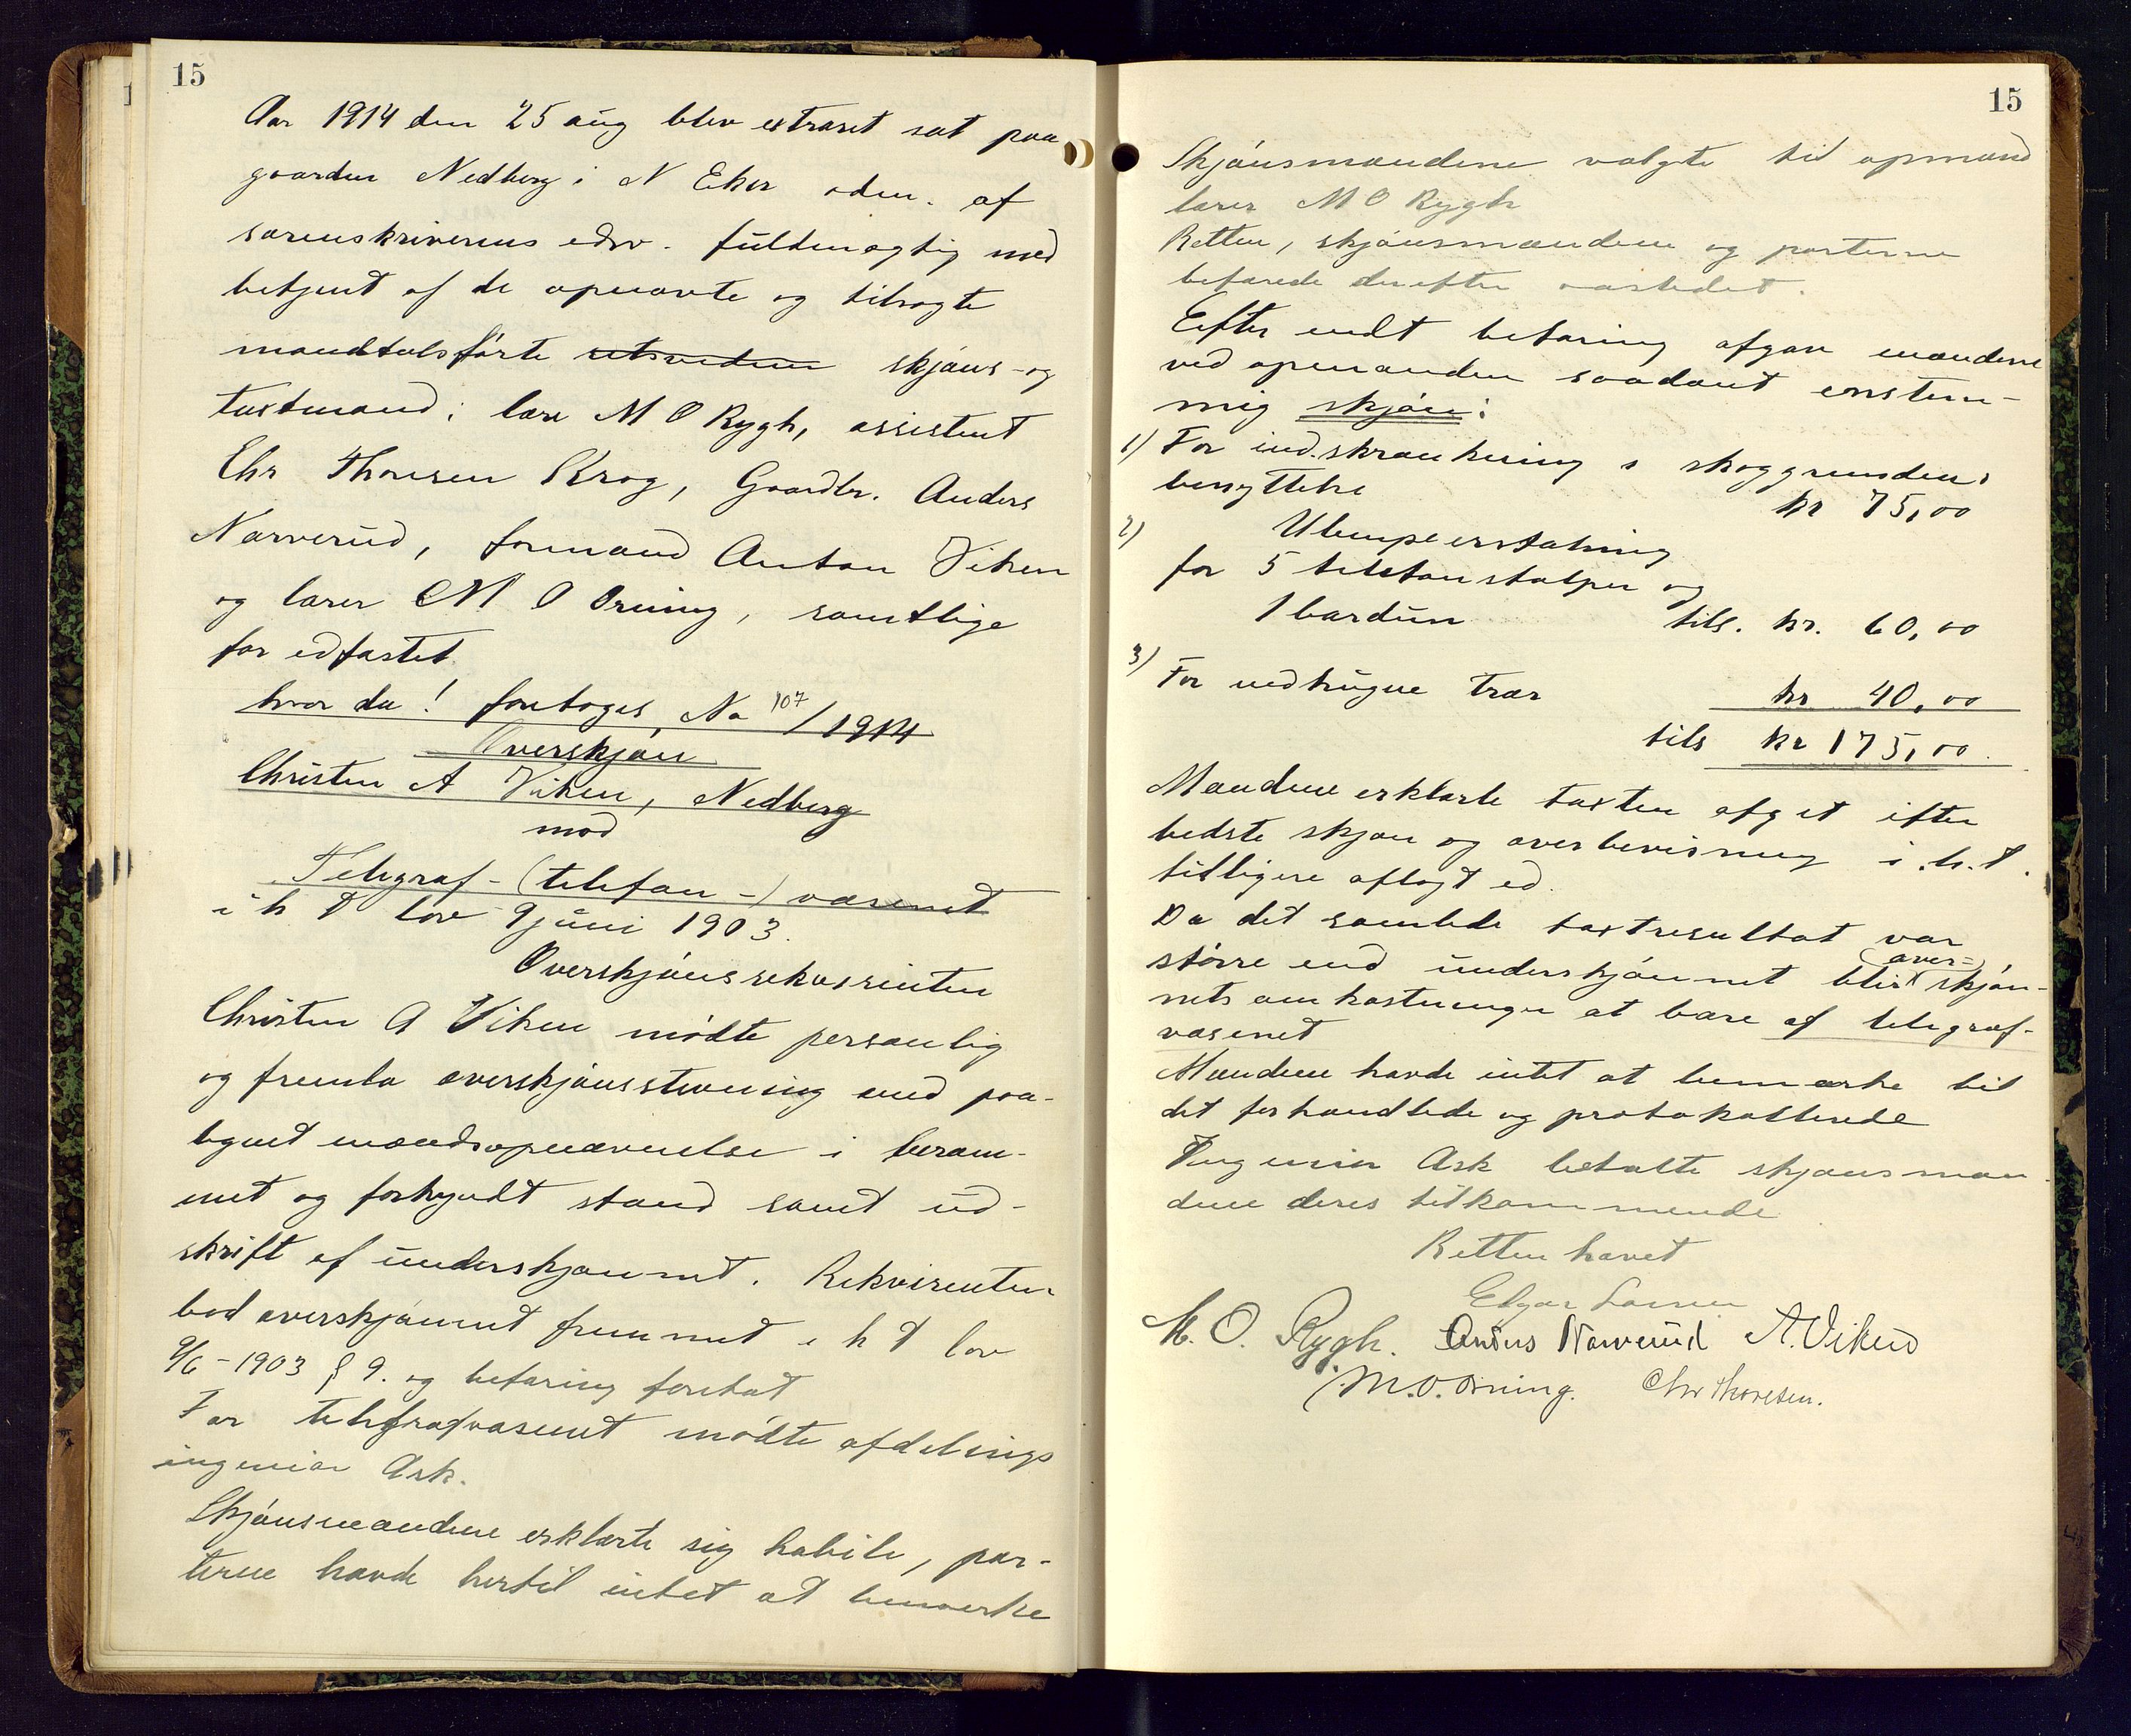 15
Aar 1914 den 25 aug blev extraret sat paa
gaarden Nedberg i N Eker  af
sorenskriverens edsv. fuldmægtig med
betjent af de opnævnte og tilsagte
mandtalsførte retsvidner skjøns- og
taxtmænd: lærer M O Rygh, assistent
Chr Thoresen Krog, Gaardbr. Anders
Narverud, formand Anton Viken
og lærer M O Orning, samtlige
før edfæstet.
hvor da! foretoges No 107/1914
Overskjøn
Christen A Viken, Nedberg
mod
Telegraf-(telefon-)væsenet
i h t lov 9 juni 1903.
Overskjønsrekvirenten
Christen A Viken mødte personlig
og fremla overskjønsstevning med paa-
tegnet mændsopnævnelse i beram-
met og forkyndt stand samt ud-
skrift af underskjønnet. Rekvirenten
bad overskjønnet fremmet i h t lov
9/6-1903 § 9. og befaring foretat
For telegrafvæsenet mødte afdelings
ingeniør Ask.
Skjønsmændene erklærte sig habile, par-
terne havde hertil intet at bemerke
15
Skjønsmændene valgte til opmand
lærer M O Rygh
Retten, skjønsmændene og parterne
befarede derefter aastedet.
Efter endt befaring afgav mændene
ved opmanden saadant enstem-
mig skjøn:
1) For indskrænkning i skoggrundens
benyttelse kr 75,00
2) Ulempeerstatning
for 5 telefonstolper og
1 bardun tils. kr. 60,00
3) For nedhugne trær kr 40,00
tils kr 175,00.
Mændene erklærte taxten afgit efter
bedste skjøn og overbevisning i h. t.
tidligere aflagt ed.
Da det samlede taxtresultat var
større end underskjønnet blir over-skjøn-
nets omkostninger at bære af telegraf-
væsenet
Mændene havde intet at bemærke til
det forhandlede og protokollerede
Ingeniør Ask betalte skjønsmæn-
dene deres tilkommende
Retten hævet
Edgar Larsen
M. O. Rygh. Anders Narverud A. Viken
M. O. Orning. Chr Thoresen.